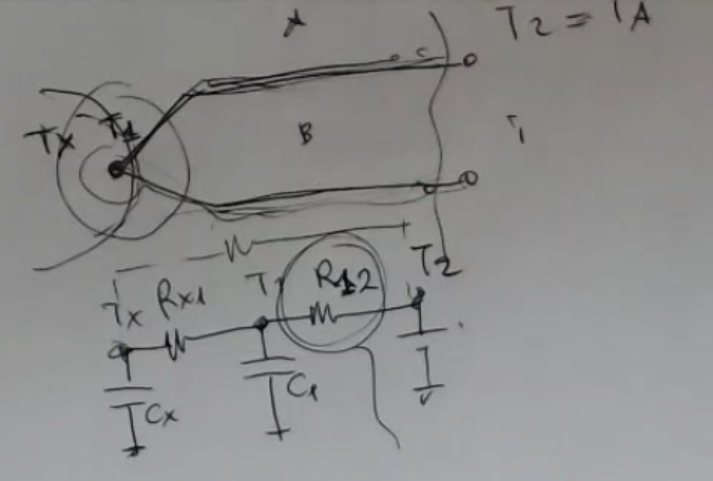 A
T2 = TA
B
Tx T1
T2
Tx Rx1 T1 R12
Cx C1